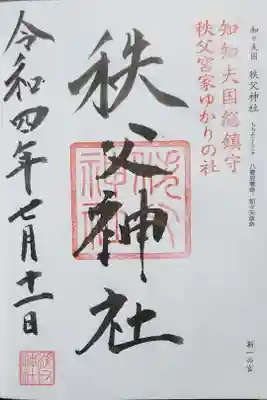 知知夫国 秩父神社
知知夫国総鎮守
秩父宮家ゆかりの社
秩父神社
令和四年七月十一日
新一の宮